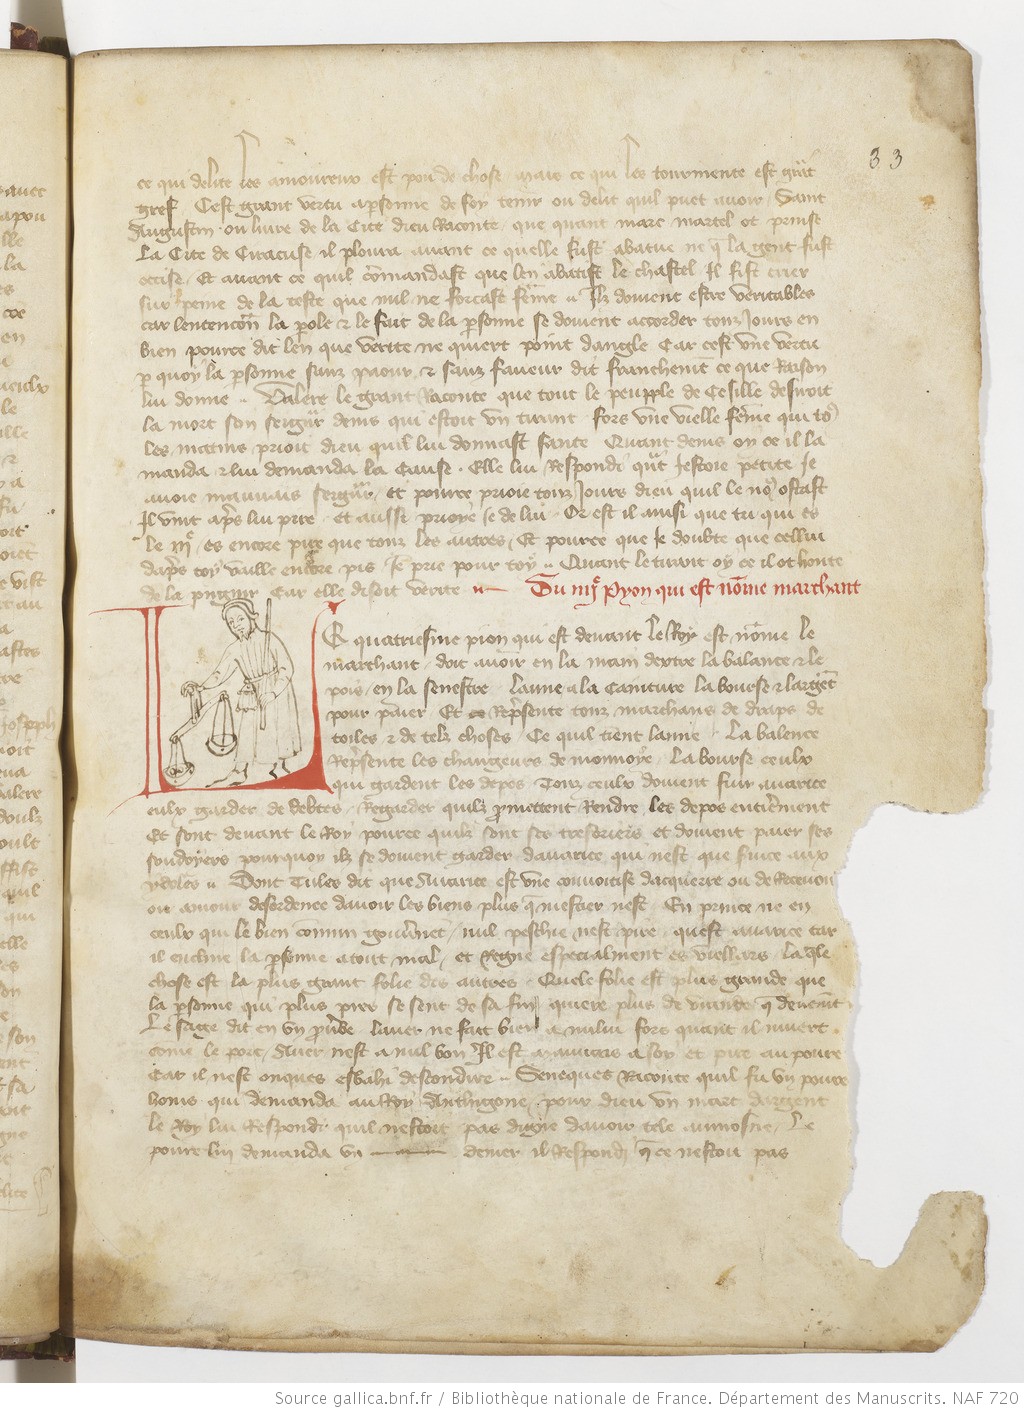 33
ce qui delite les amoureux est pou de chose mais ce qui les tourmente est grāt
gref Cest grant vertu a psonne de soy tenir ou delit quil puet avoir Saint
Augustin ou livre de la Cite dieu Raconte que quant marc martel ot prinse
La Cite de Ciracuse il ploura avant ce quelle fust abatue ne q la gent fust
occise Et avant ce quil cōmandast que len abatist le chastel Il fist crier
sur peine de la teste que nul ne forcast fēme Ilz doivent estre veritables
car lentencōn la pole & le fait de la psonne se doivent accorder touz Jours en
bien pource dit len que verite ne quiert point dangle Car cest une vertu
p quoy la psonne sanz paour & sanz faveur dit franchemēt ce que Raison
lui donne Valere le grant Raconte que tout le peupple de Cesille desiroit
la mort son seigur denis qui estoit un tirant fors une vielle fēme qui to9
les matins prioit dieu quil lui donnast sante Quant denis oy ce il la
manda & lui demanda la Cause Elle lui Respondi qāt Jestoie petite Je
avoie mauvais seigur et pource prioie touz Jours dieu quil le no9 ostast
Il vint aps lui pire et aussi prioye Je de lui Or est il ainsi que tu qui es
le iije es encore pire que touz les autres Et pource que Je doubte que cellui
daps toy vaille encore pis Je prie pour toy Quant le tirant oy ce il ot honte
de la pugnir Car elle disoit verite Du iiije Pyon qui est nōme marchant
Le quatriesme pion qui est devant le Roy est nōme le
marchant doit avoir en la main dextre la balance & le
pois en la senestre laune a la Cainture la bourse & largēt
pour paier Et Repsente touz marchans de draps de
toiles & de telz choses Ce quil tient laune La balence
Repsente les changeurs de monnoye La bourse ceulx
qui gardent les depos Touz ceulx doivent fuir avarice
eulx garder de debtes Regarder quilz promettent Rendre les depos entieremēt
Et sont devant le Roy pource quilz sont ses tresoriers et doivent paier ses
soudoyers pourquoy ilz se doivent garder davarice qui nest que service aux
ydoles Dont Tules dit que Avarice est une convoitise dacquerre ou de Recevoir
ou amour desordenee davoir les biens plus q mestier nest En prince ne en
ceulx qui le bien cōmun gouvnēt nul pechie nest pire quest avarice car
il encline la psonne a tout mal et Regne especialment es viellars la qle
chose est la plus grant folie des autres Quele folie est plus grande que
la psonne qui plus pres se sent de sa fin quiere plus de viande q devant
Le sage dit en un pverbe laver ne fait bien a nului fors quant il muert
cōme le porc Aver nest a nul bon Il est mauvais a soy et pire au povre
Car il nest onques esbahi descondire Seneques Raconte quil fu un povre
homs qui demanda au Roy Anthigone pour dieu un marc dargent
le Roy lui Respondi quil nestoit pas digne davoir tele aumosne Le
povre lui demanda un denier il Respondi q ce nestoit pas
Source gallica.bnf.fr / Bibliothèque nationale de France. Département des Manuscrits. NAF 720